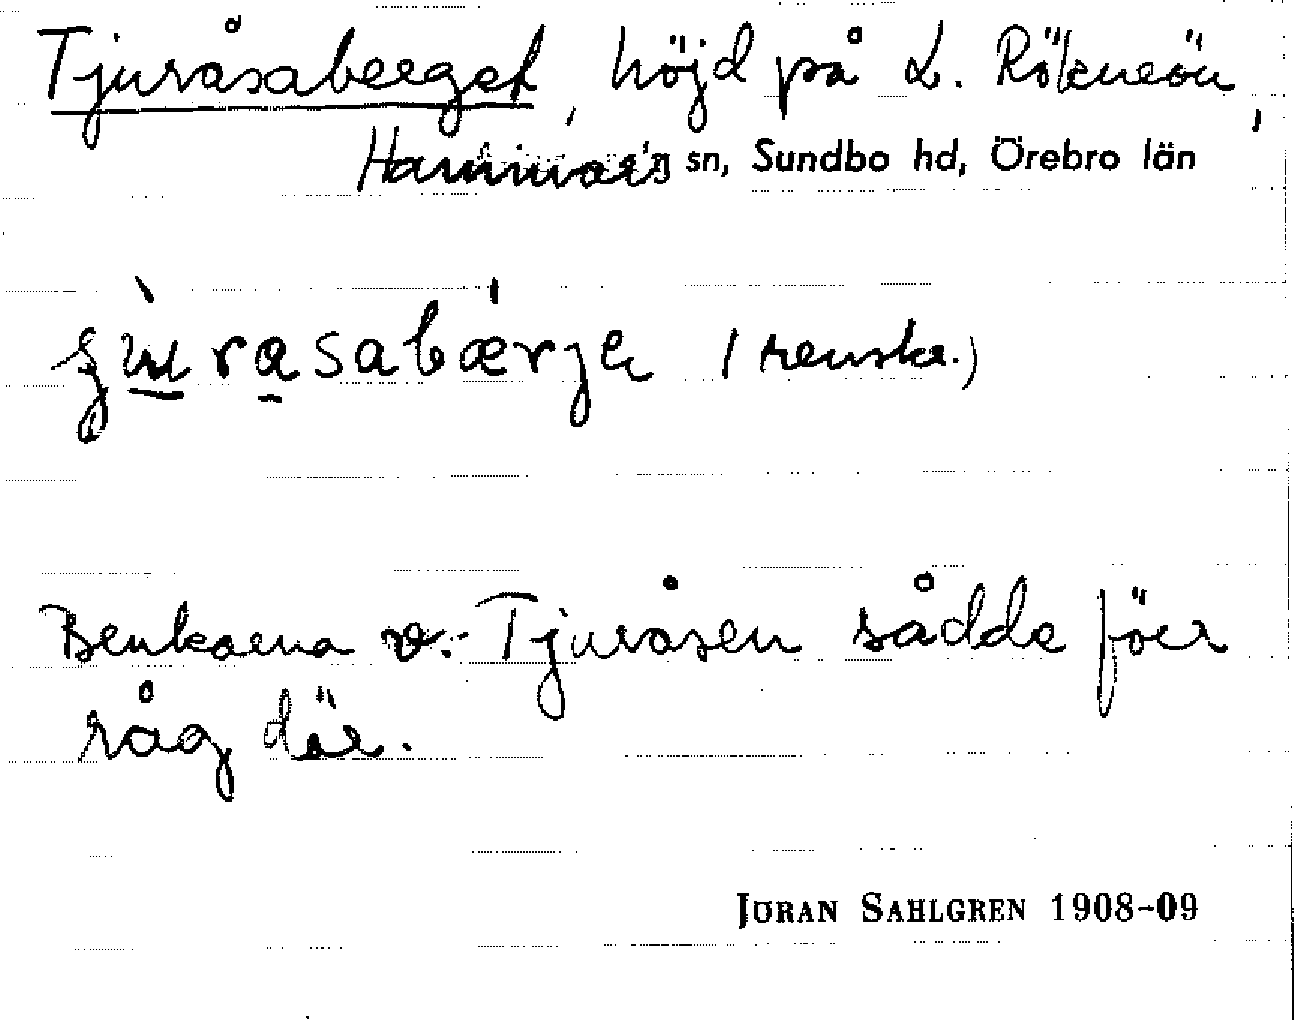 Tjuråsaberget, höjd på L. Rökneön,
Hammars sn, Sundbo hd, Örebro län
(renskr.)
Benkarna v. Tjuråsen sådde förr
råg där.
JÖRAN SAHLGREN 1908-09